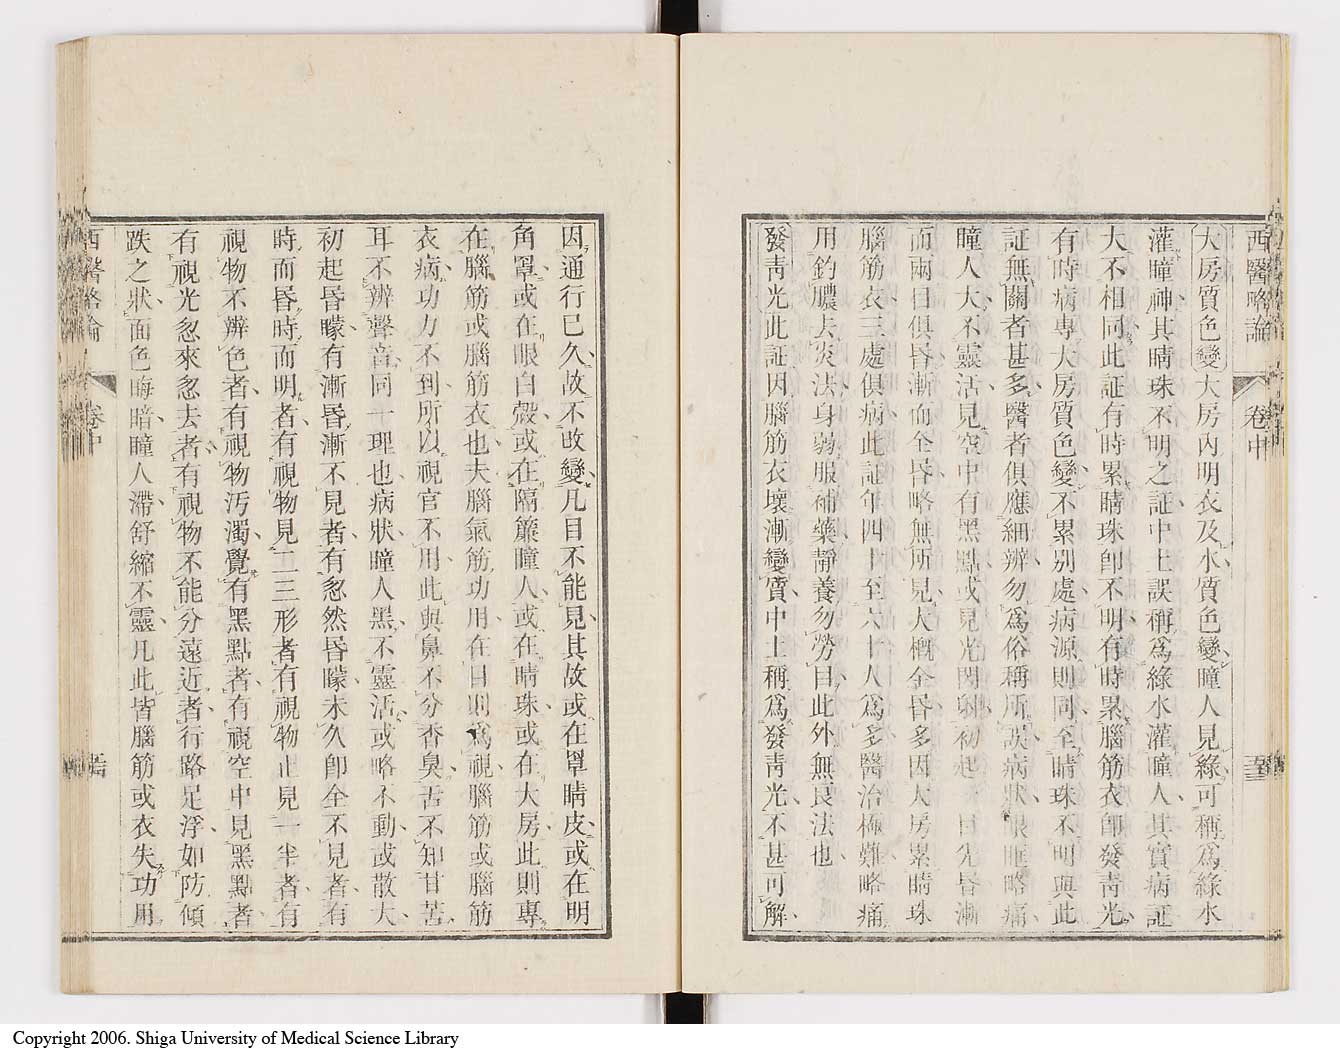 西醫略論
卷中
大房質色變大房內明衣及水質色變瞳人見綠可稱爲綠水
灌瞳神其睛珠不明之証中土誤稱爲綠水灌瞳人其實病証
大不相同此証有時累睛珠卽不明有時累腦筋衣卽發靑光
有時病專大房質色變不累別處病源則同至睛珠不明與此
証無關者甚多醫者俱應細辨勿爲俗稱所誤病狀眼眶略痛
瞳人大不靈活見空中有黑點或見光閃射初起一目先昏漸
而兩目俱昏漸而全昏略無所見大槪全昏多因大房累睛珠
腦筋衣三處俱病此証年四十至六十人爲多醫治極難略痛
用釣膿去炎法身弱服補藥靜養勿勞目此外無良法也
發靑光此証因腦筋衣壞漸變質中土稱爲發靑光不甚可解
因通行已久故不改變凡目不能見其故或在罩睛皮或在明
角罩或在眼白殼或在隔簾瞳人或在睛珠或在大房此則專
在腦筋或腦筋衣也夫腦氣筋功用在目則爲視腦筋或腦筋
衣病功力不到所以視官不用此與鼻不分香臭舌不知甘苦
耳不辨聲音同一理也病狀瞳人黑不靈活或略不動或散大
初起昏矇有漸昏漸不見者有忽然昏矇未久卽全不見者有
時而昏時而明者有視物見二三形者有視物止見一半者有
視物不辨色者有視物污濁覺有黑點者有視空中見黑點者
有視光忽來忽去者有視物不能分遠近者行路足浮如防傾
跌之狀面色晦暗瞳人滯舒縮不靈凡此皆腦筋或衣失功用
西醫略論
卷中